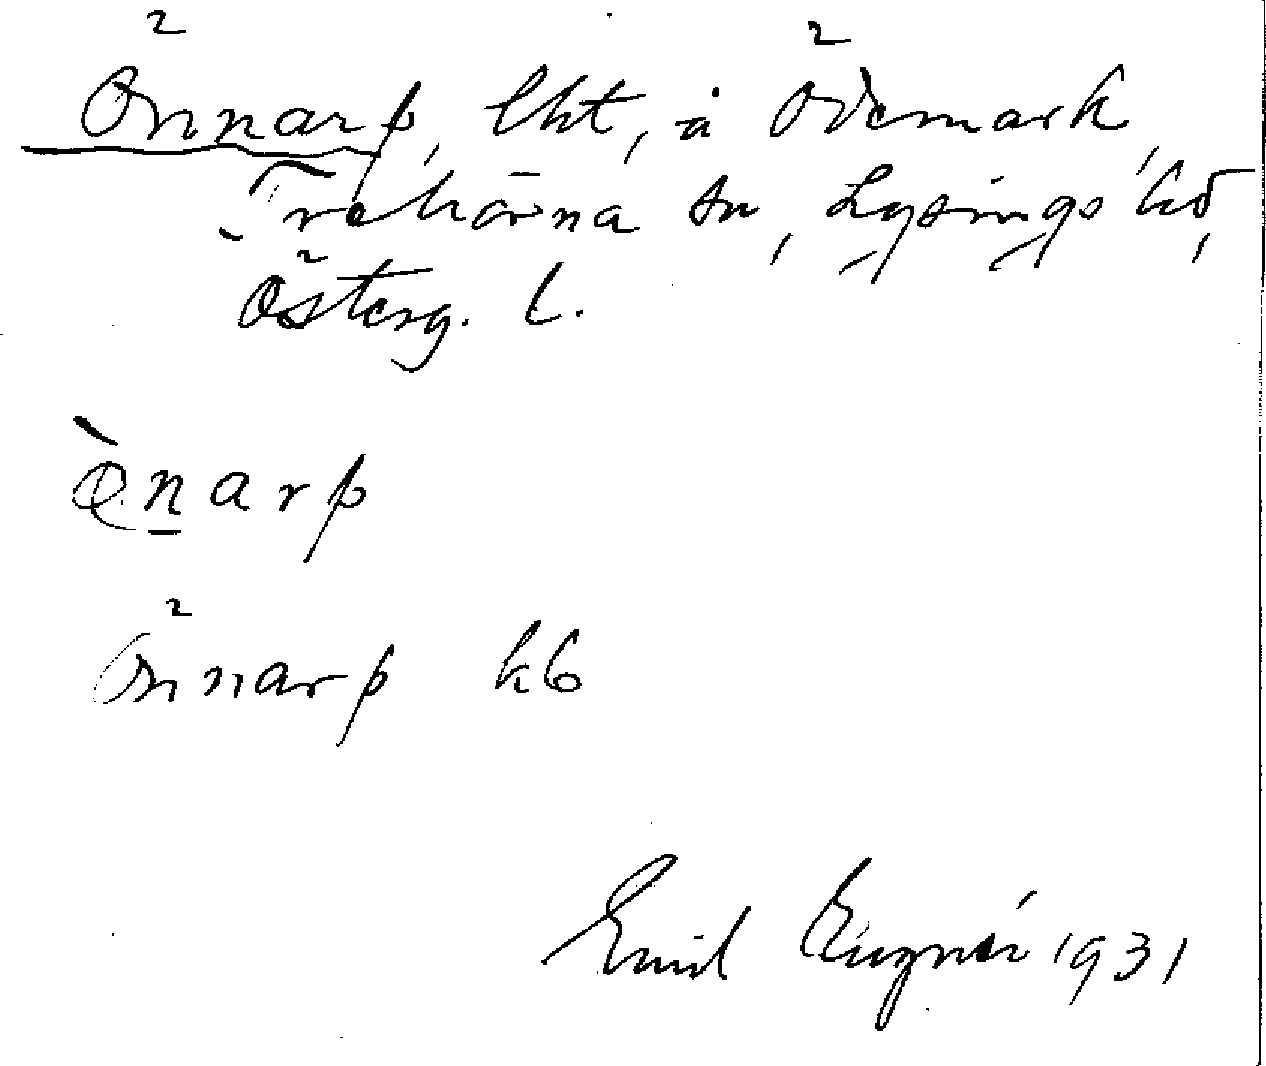 Önnarp, lht, å Ödemark,
Trehörna sn, Lysings hd,
Österg. l.
Ònarp
Önnarp kb
Emil 1931